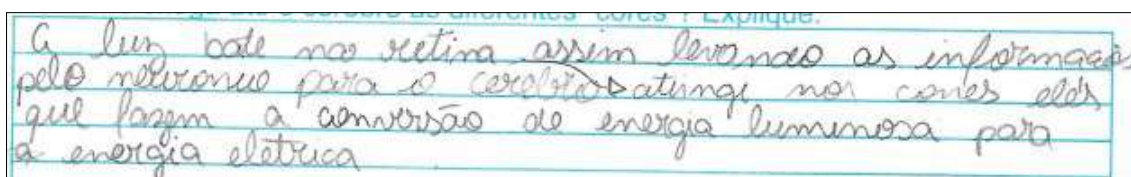 cérebro as diferentes cores? Explique.
A luz bate na retina assim levando as informações
pelo neuronio para o cerebro atinge nos cones eles
que fazem a conversão de energia luminosa para
a energia eletrica